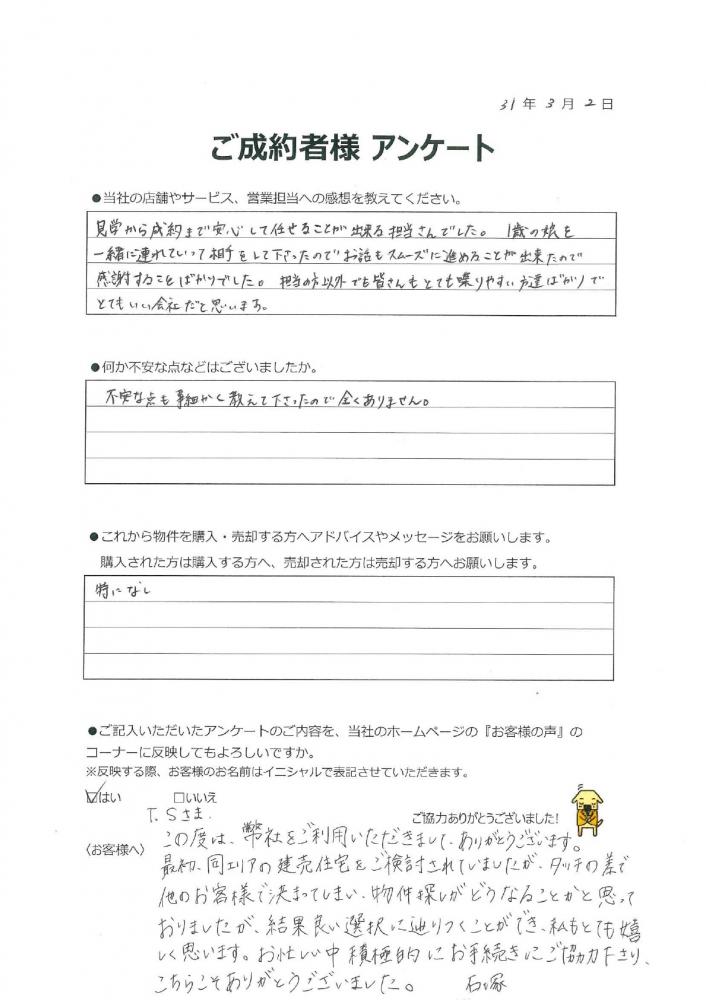 31年 3月 2日
ご成約者様 アンケート
●当社の店舗やサービス、営業担当への感想を教えてください。
見学から成約まで安心して任せることが出来る担当さんでした。 1歳の娘を
一緒に連れていって相手をして下さったのでお話もスムーズに進めることが出来たので
感謝することばかりでした。 担当の方以外でも皆さんもとても喋りやすい方達ばかりで
とてもいい会社だと思います。
●何か不安な点などはございましたか。
不安な点も事細かく教えて下さったので全くありません。
●これから物件を購入・売却する方へアドバイスやメッセージをお願いします。
購入された方は購入する方へ、売却された方は売却する方へお願いします。
特になし
●ご記入いただいたアンケートのご内容を、当社のホームページの『お客様の声』の
コーナーに反映してもよろしいですか。
※反映する際、お客様のお名前はイニシャルで表記させていただきます。
☑はい □いいえ
T.Sさま.
ご協力ありがとうございました!
〈お客様へ〉
この度は、弊社をご利用いただきまして、ありがとうございます。
最初、同エリアの建売住宅をご検討されていましたが、タッチの差で
他のお客様で決まってしまい、物件探しがどうなることかと思って
おりましたが、結果良い選択に辿りつくことができ、私もとても嬉
しく思います。お忙しい中積極的にお手続きにご協力下さり、
こちらこそありがとうございました。 石塚